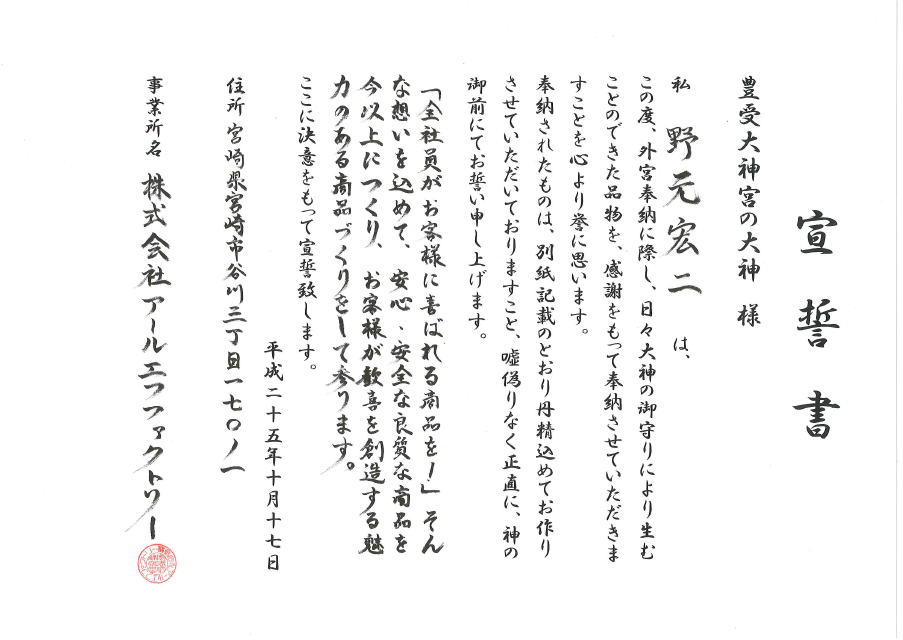 宣誓書
豊受大神宮の大神 様
私 野元宏二 は、
この度、外宮奉納に際し、日々大神の御守りにより生む
ことのできた品物を、感謝をもって奉納させていただきま
すことを心より誉に思います。
奉納されたものは、別紙記載のとおり丹精込めてお作り
させていただいておりますこと、嘘偽りなく正直に、神の
御前にてお誓い申し上げます。
「全社員がお客様に喜ばれる商品を!」そん
な想いを込めて、安心、安全な良質な商品を
今以上につくり、お客様が歓喜を創造する魅
力のある商品づくりをして参ります。
ここに決意をもって宣誓致します。
平成二十五年十月十七日
住所 宮崎県宮崎市谷川三丁目一七〇ノ一
事業所名 株式会社アールエフファクトリー